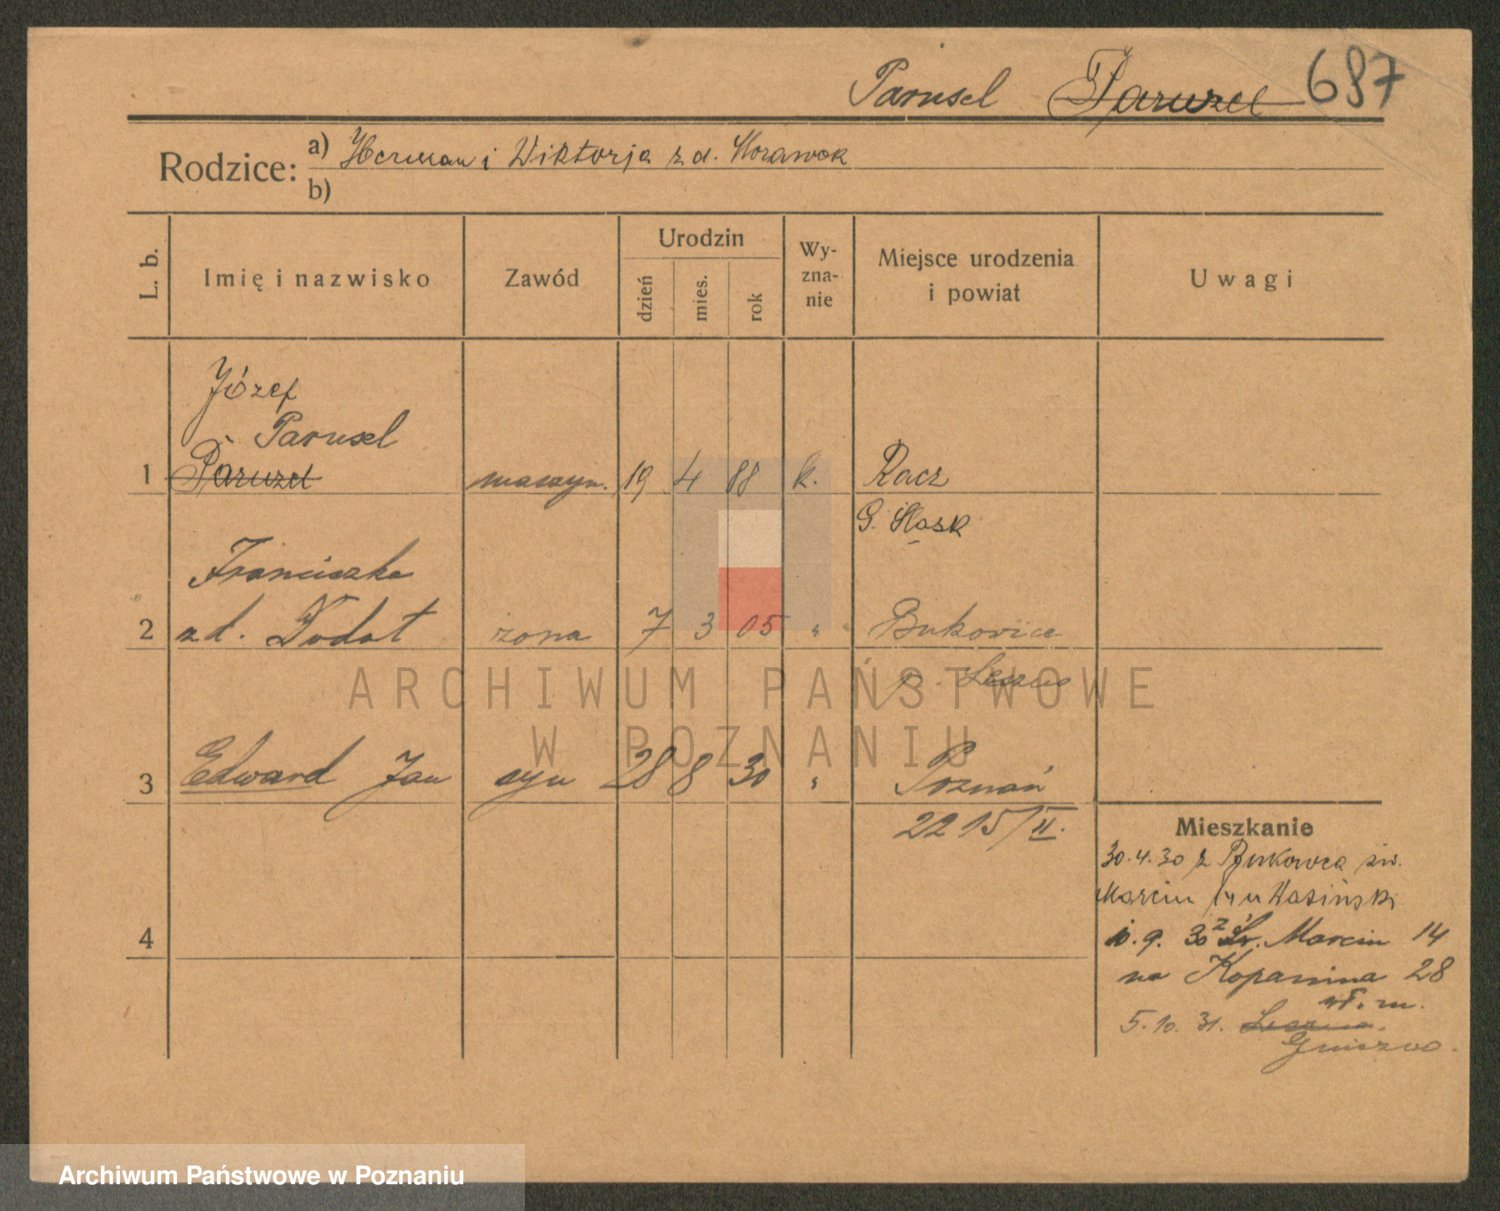 Parusel Paruzel 697
Rodzice: a) Herman i Wiktorja z d. Morawek
b)
L. b. Imię i nazwisko Zawód Urodzin dzień mies. rok Wy-zna-nie Miejsce urodzenia i powiat Uwagi
Józef
Parusel
1 Paruzel maszyn. 19 4 88 k. Racz
G. Śląsk
Franciszka
2 z d. Dodot żona 7 3 05 " Bukowiec
p. Leszno
3 Edward Jan syn 28 8 30 " Poznań
2215/II.
Mieszkanie
30.4.30 z Bukowca św.
Marcin u
4 9. 30 z Św. Marcin 14
na Kopanina 28
wł. m.
5.10.31. Leszno.
Gniezno.
ARCHIWUM PAŃSTWOWE
W POZNANIU
Archiwum Państwowe w Poznaniu